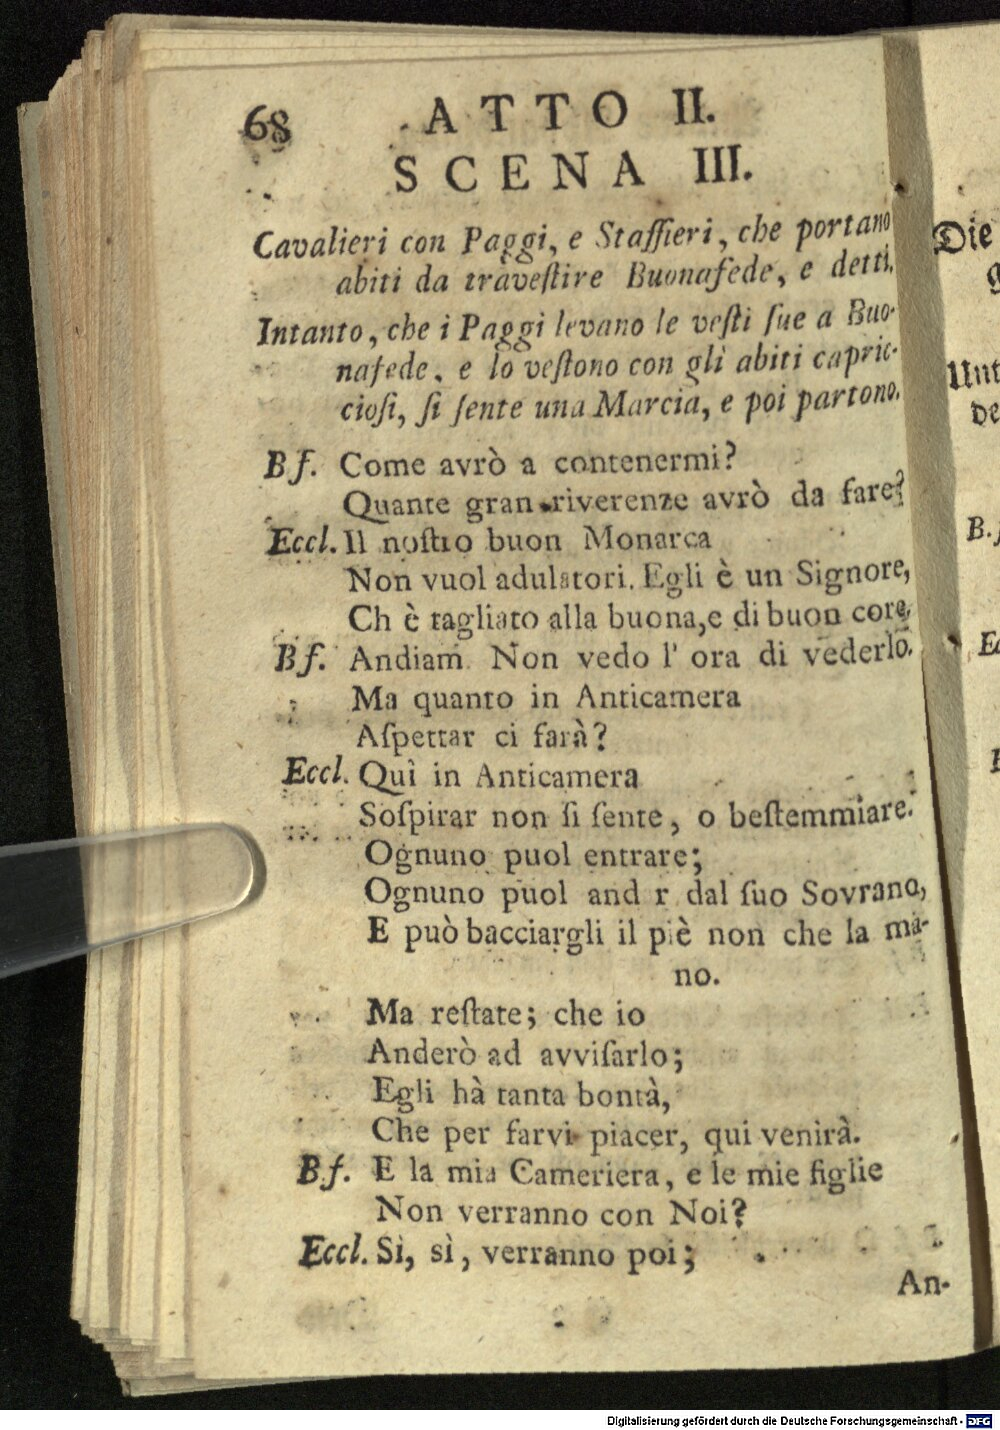 68 ATTO II.
SCENA III.
Cavalieri con Paggi, e Staffieri, che portano
abiti da traveſtire Buonafede, e detti.
Intanto, che i Paggi levano le veſti ſue a Buo-
nafede, e lo veſtono con gli abiti capric-
cioſi, ſi ſente una Marcia, e poi partono.
Bf. Come avrò a contenermi?
Quante gran riverenze avrò da fare?
Eccl. Il noſtro buon Monarca
Non vuol adulatori. Egli è un Signore,
Ch è tagliato alla buona, e di buon core.
Bf. Andiam Non vedo l' ora di vederlo.
Ma quanto in Anticamera
Aſpettar ci farà?
Eccl. Quì in Anticamera
Soſpirar non ſi ſente, o beſtemmiare.
Ognuno puol entrare;
Ognuno puol and r dal ſuo Sovrano,
E può bacciargli il piè non che la ma-
no.
Ma reſtate; che io
Anderò ad avviſarlo;
Egli hà tanta bontà,
Che per farvi piacer, qui venirà.
B.f. E la mia Cameriera, e le mie figlie
Non verranno con Noi?
Eccl. Sì, sì, verranno poi;
An-
Die
Unt
de
B.f
Digitalisierung gefördert durch die Deutsche Forschungsgemeinschaft - DFG